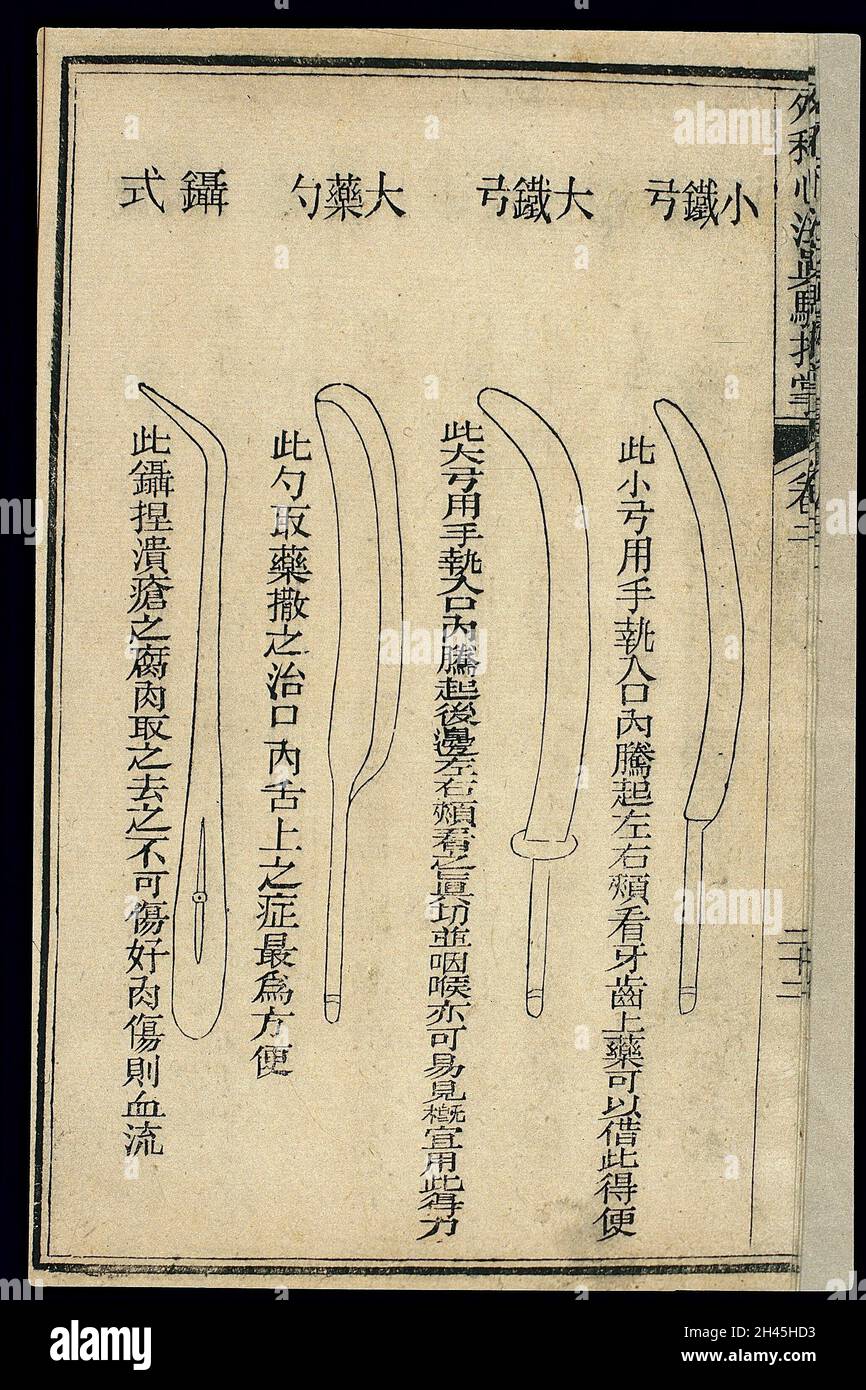 外科心法真驗指掌 卷二 二十二
小鐵弓
此小弓用手執入口內騰起左右頰看牙齒上藥可以借此得便
大鐵弓
此大弓用手執入口內騰起後邊左右頰看之眞切並咽喉亦可易見概宜用此得力
大藥勺
此勺取藥撒之治口內舌上之症最爲方便
鑷式
此鑷捏潰瘡之腐肉取之去之不可傷好肉傷則血流
alamy
alamy
alamy
Image ID: 2H45HD3
www.alamy.com